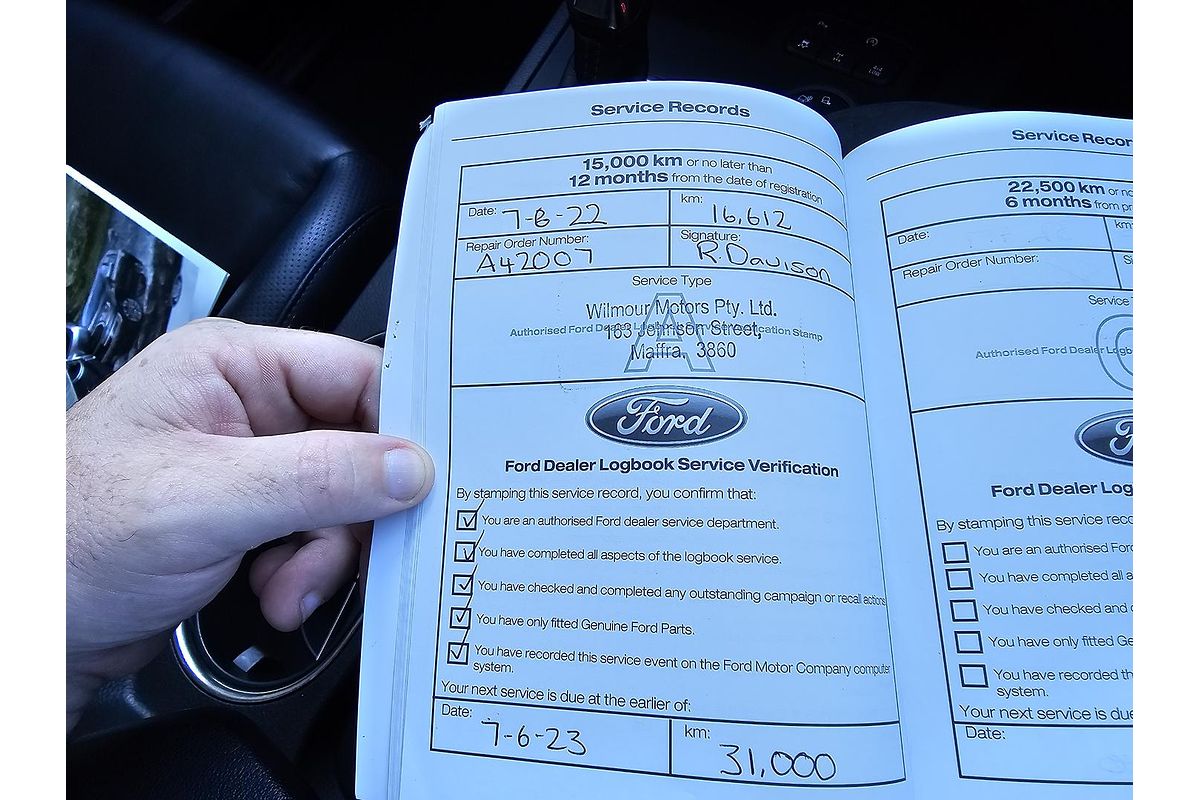 Service Records
15,000 km or no later than
12 months from the date of registration
Date: 7-6-22
km: 16,612
Repair Order Number: A42007
Signature: R.Davison
Service Type
A
Wilmour Motors Pty. Ltd.
Authorised Ford Dealer Logbook Service Verification Stamp
163 Johnson Street,
Maffra, 3860
Ford
Ford Dealer Logbook Service Verification
By stamping this service record, you confirm that:
You are an authorised Ford dealer service department.
You have completed all aspects of the logbook service.
You have checked and completed any outstanding campaign or recall actions
You have only fitted Genuine Ford Parts.
You have recorded this service event on the Ford Motor Company computer
system.
Your next service is due at the earlier of:
Date: 7-6-23
km: 31,000
Service Recor
22,500 km or no
6 months from pr
Date:
km:
Repair Order Number:
Si
Service T
Authorised Ford Dealer Logb
F
Ford Dealer Log
By stamping this service reco
You are an authorised Ford
You have completed all a
You have checked and c
You have only fitted Ge
You have recorded th
system.
Your next service is due
Date: